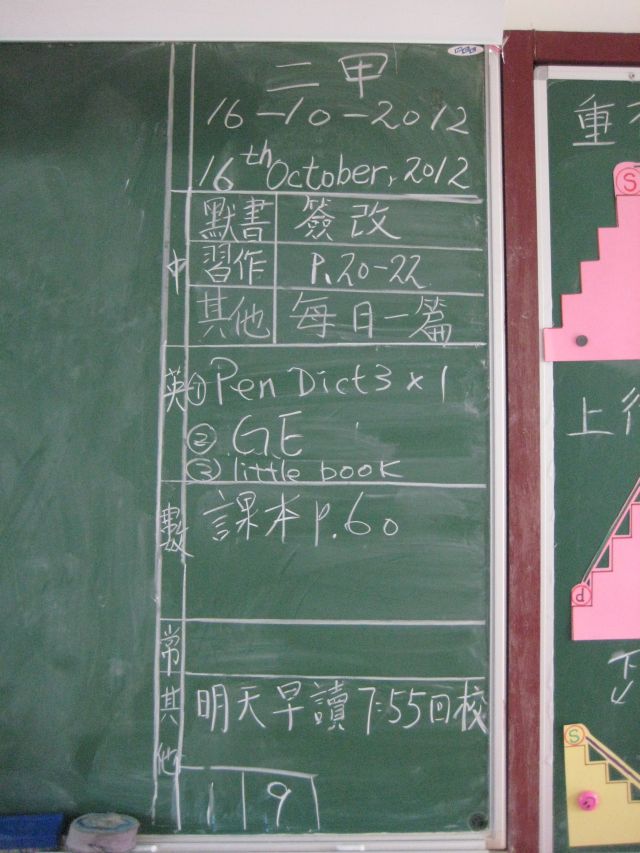 二甲
16-10-2012
16th October, 2012
中
默書 簽改
習作 P.20-22
其他 每日一篇
英 ① Pen Dict 3 x 1
② GE
③ little book
數 課本 P.60
常
其他 明天早讀 7:55回校
1 9
重
S
上行
d
下
S